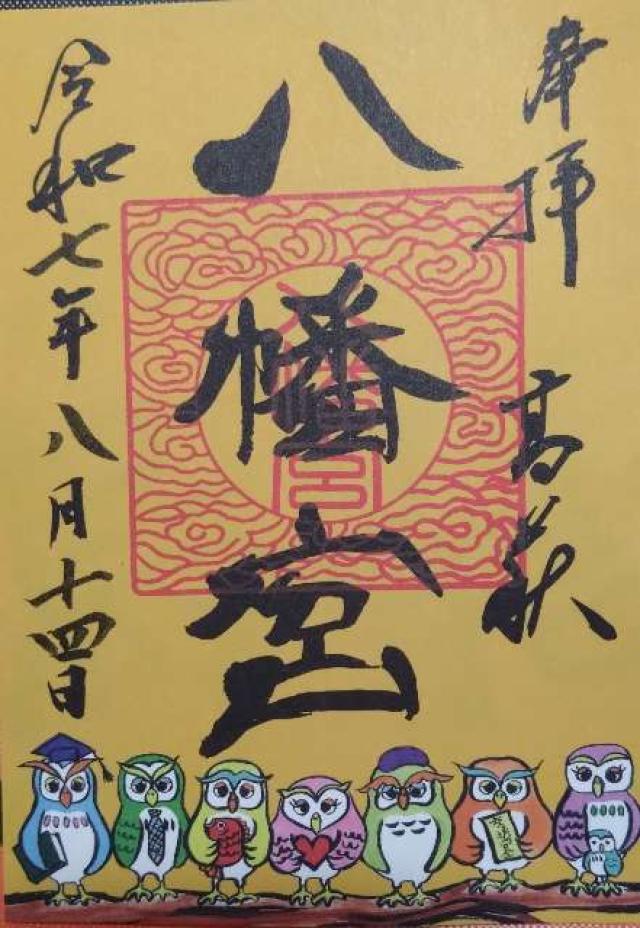 奉拝 高萩
八幡宮
令和七年八月十四日